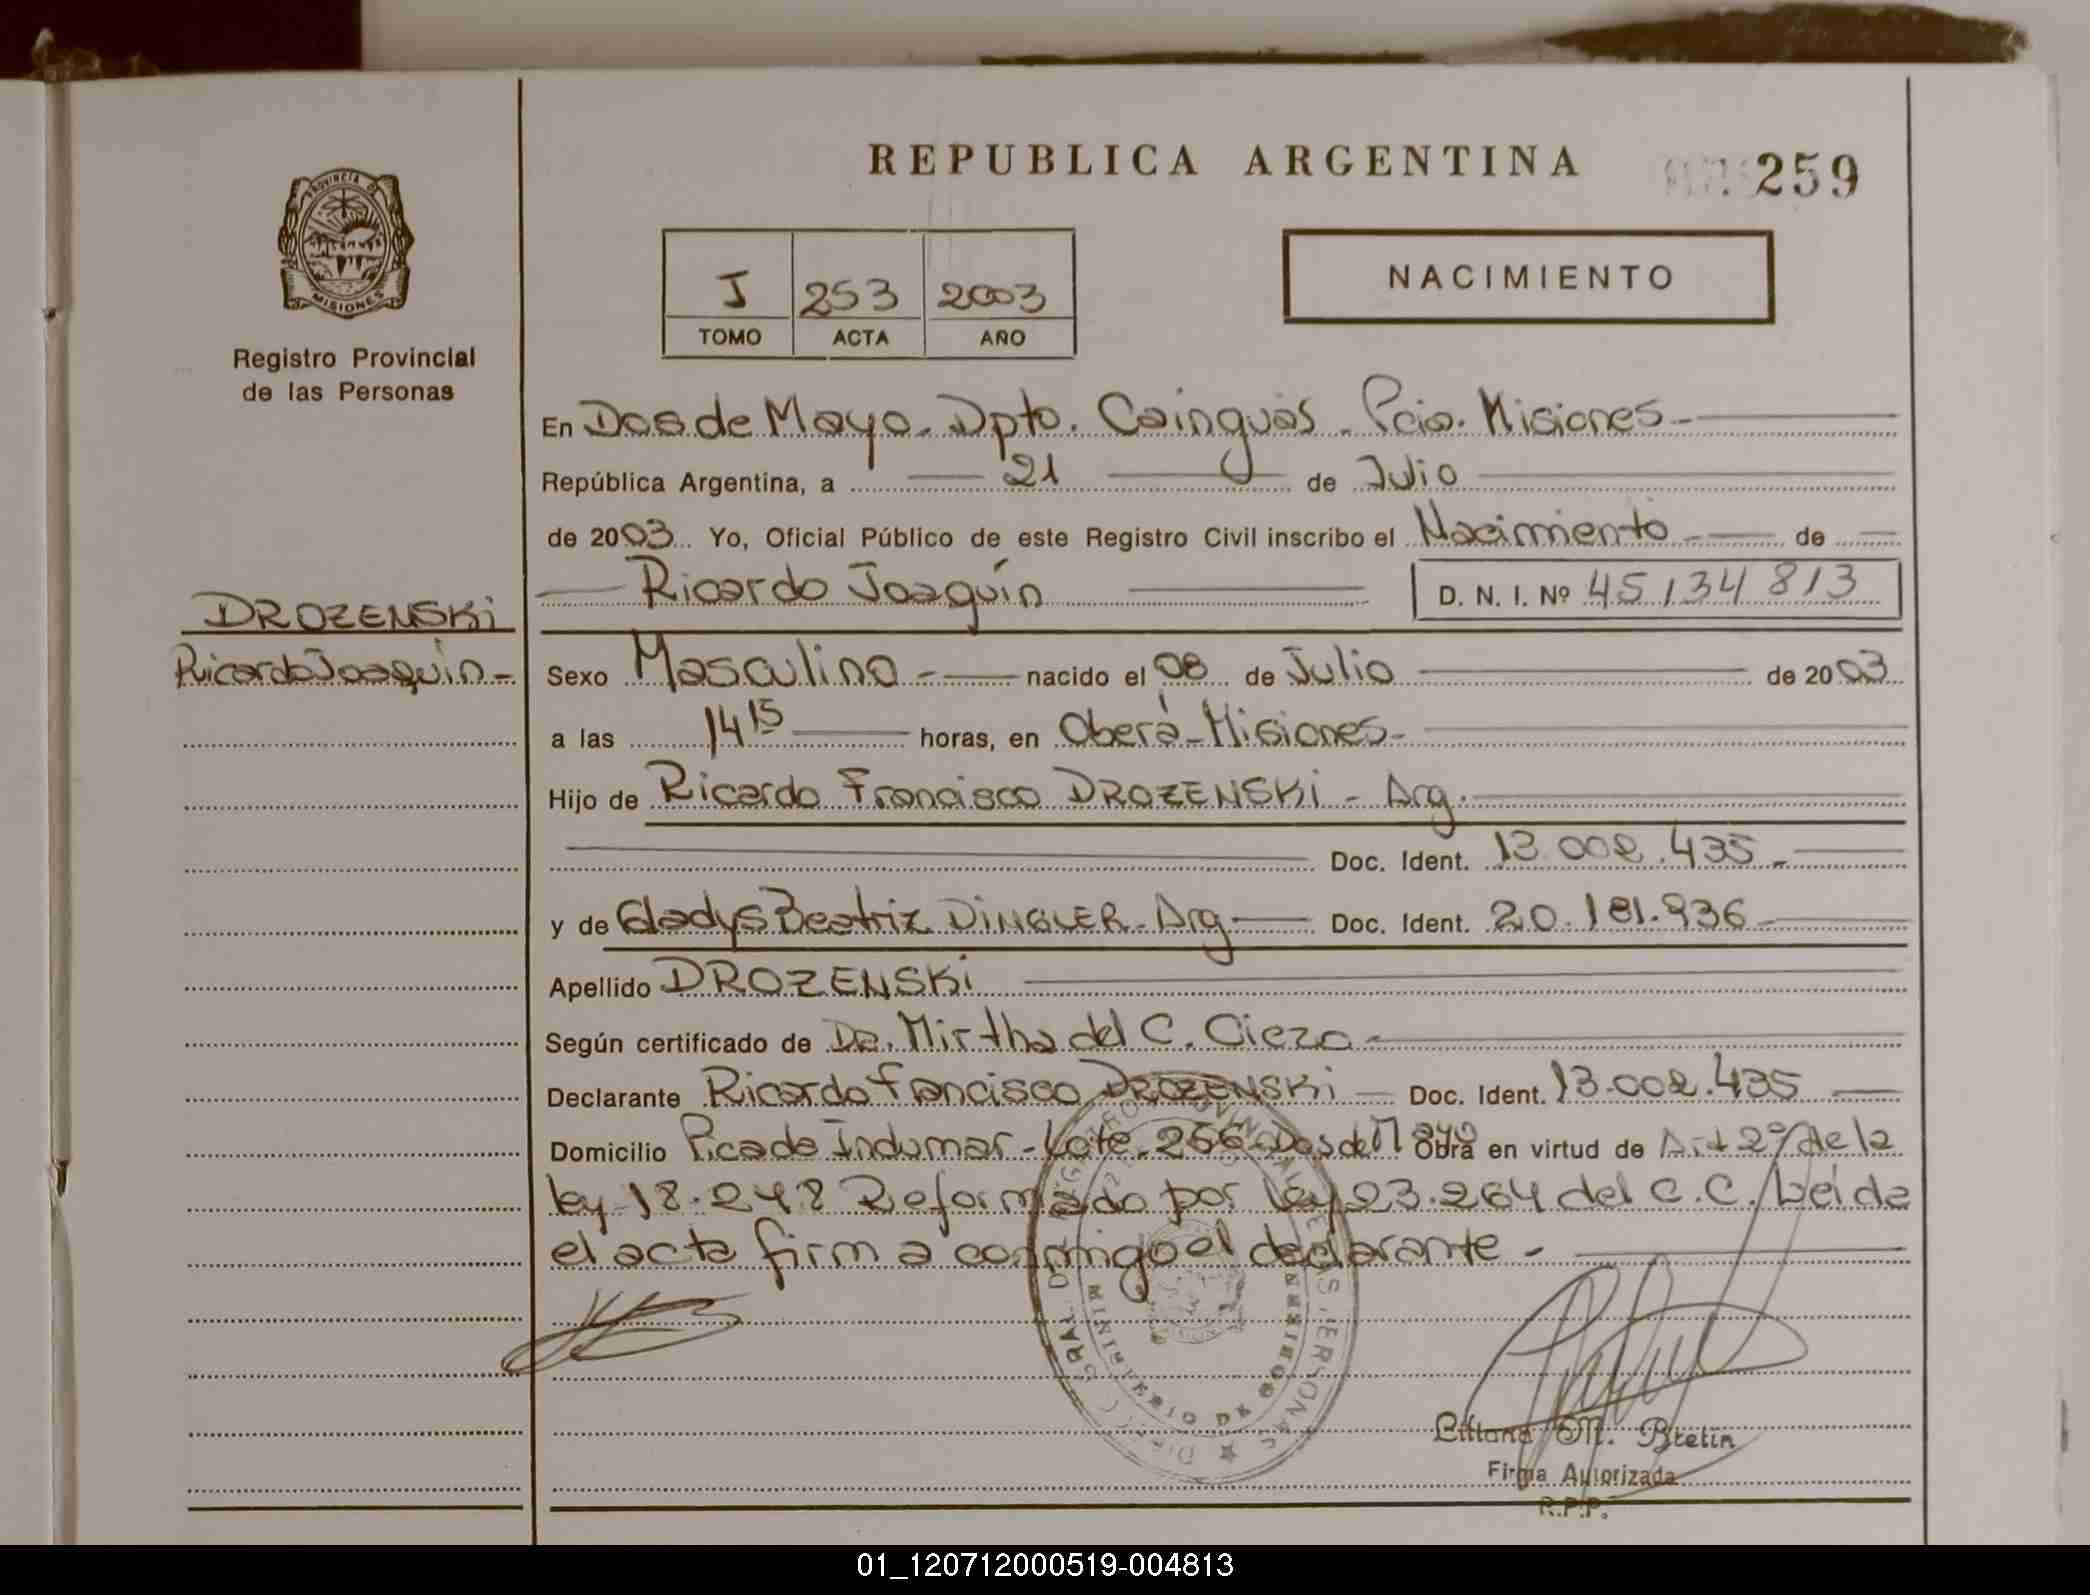 REPUBLICA ARGENTINA
259
PROVINCIA DE
MISIONES
Registro Provincial
de las Personas
J 253 2003
TOMO ACTA AÑO
NACIMIENTO
En Dos de Mayo. Dpto. Cainguás. Pcia. Misiones
República Argentina, a 21 de Julio
de 2003 Yo, Oficial Público de este Registro Civil inscribo el Nacimiento de
Ricardo Joaquín D. N. I. Nº 45134813
DROZENSKi
Ricardo Joaquín-
Sexo Masculino - nacido el 08 de Julio de 2003
a las 14 15 horas, en Oberá-Misiones-
Hijo de Ricardo Francisco DROZENSKi - Arg.
Doc. Ident. 13.002.435-
y de Gladys Beatriz DiNGLER- Arg Doc. Ident. 20.181.936-
Apellido DROZENSKi
Según certificado de Dra. Mirtha del C. Ciezo-
Declarante Ricardo Francisco DROZENSKi Doc. Ident. 13.002.435
Domicilio Picada Indumar-Lote.256-Dos de Mayo Obra en virtud de Art 2º de la
ley 18.248 Reformado por ley 23.264 del C.C. Leída
el acta firma conmigo el declarante-
MINISTERIO DE GOBIERNO
M. Bretin
Firma Autorizada
R.P.P.
01_120712000519-004813